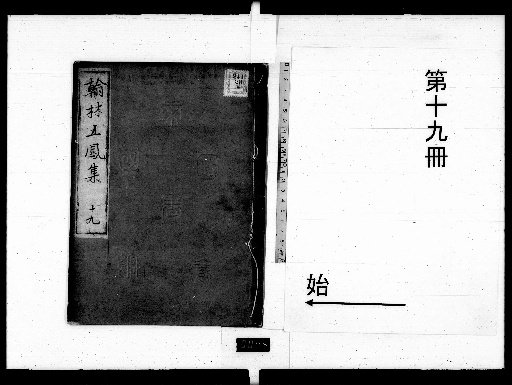 第十九冊
始
翰林五鳳集 十九